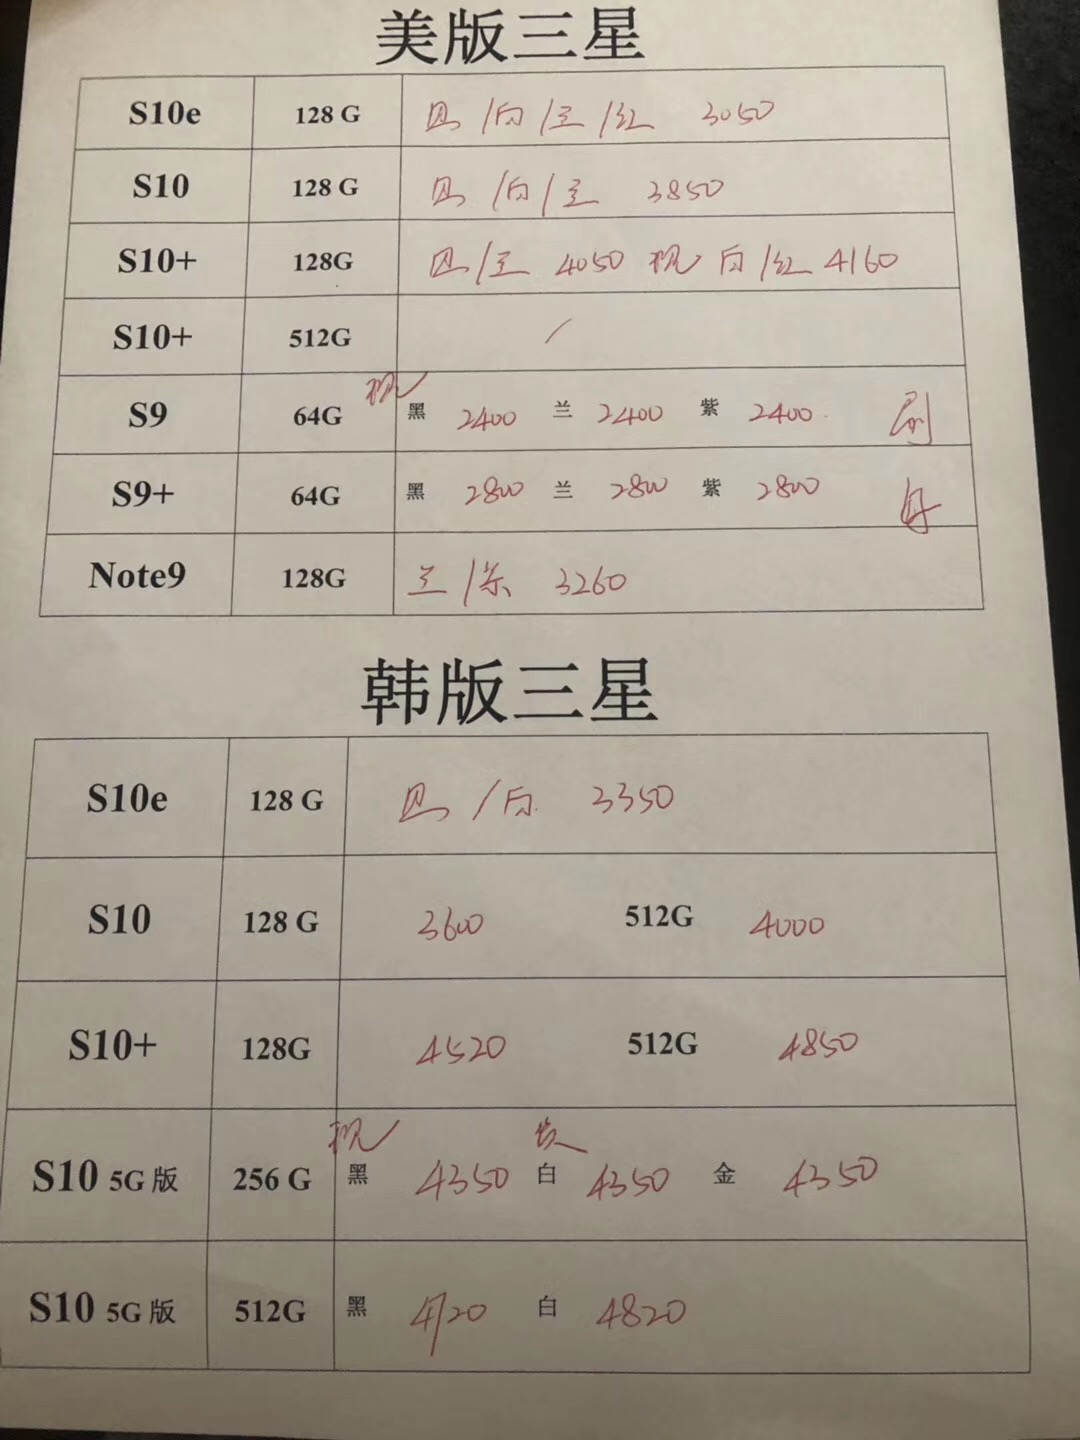 美版三星
S10e 128 G 黑/白/兰/红 3050
S10 128 G 黑/白/兰 3850
S10+ 128G 黑/兰 4050 现 白/红 4160
S10+ 512G /
S9 64G 现 黑 2400 兰 2400 紫 2400 刷
S9+ 64G 黑 2800 兰 2800 紫 2800
Note9 128G 兰/紫 3260
韩版三星
S10e 128 G 黑/白 3350
S10 128 G 3600 512G 4000
S10+ 128G 4520 512G 4850
S10 5G版 256 G 现 黑 4350 白 4350 金 4350
S10 5G版 512G 黑 4720 白 4820